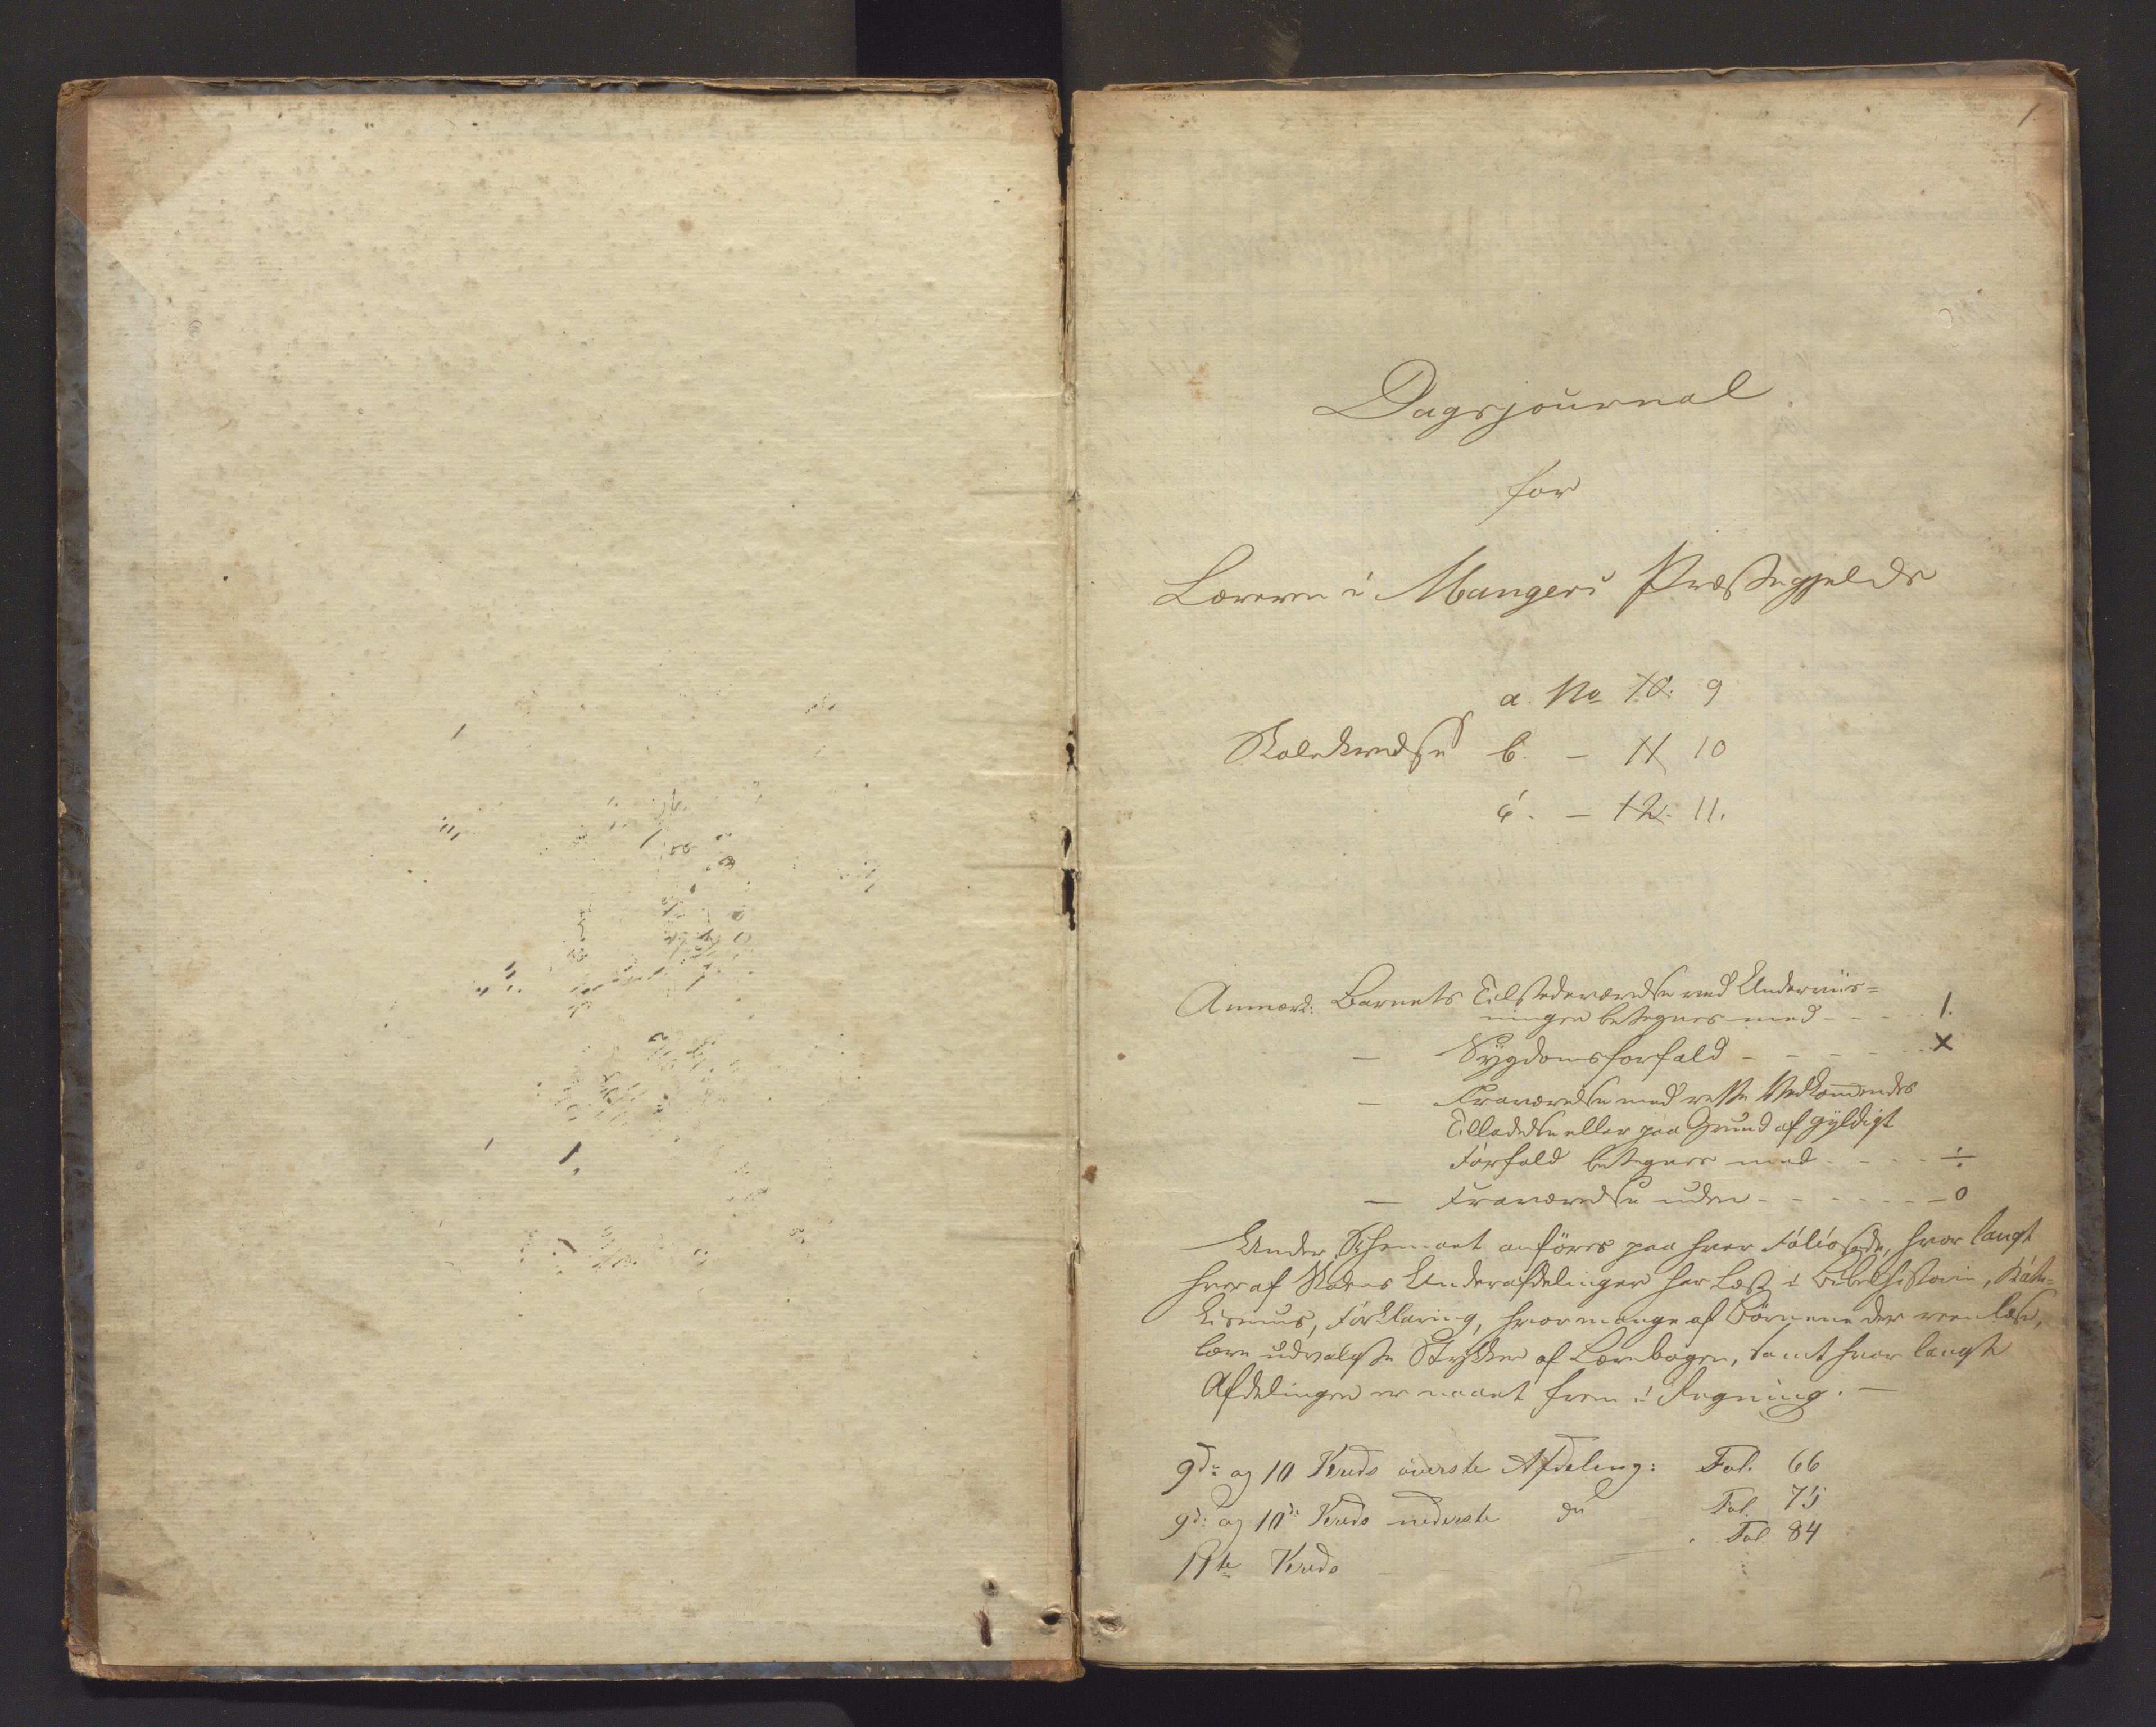 1
Dagsjournal
for
Læreren i Mangers Præstegjelds
a. No 10. 9
Skolekredse b. - 11 10
c. - 12. 11.
Anmærk: Barnets Tilstedeværelse ved Underviis=
ningen betegnes med - - - - - 1.
— Sygdomsforfald - - - - - - X
— Fraværelse med rette Vedkommendes
Tilladelse eller paa Grund af gyldigt
Forfald betegnes med - - - - ÷
— Fraværelse uden - - - - - - - 0
Under Schemaet anföres paa hver Folioside, hvor langt
hver af Skolens Underafdelinger har læst i Bibelhistorie, Kate-
kismus, Forklaring, hvormange af Börnene der reenlæse,
lære udvalgte Stykker af Læsebogen, samt hvor langt
Afdelingen er naaet frem i Regning. —
9de og 10 Kreds överste Afdeling: Fol. 66
9de og 10de Kreds nederste do Fol. 75
11te Kreds - Fol 84